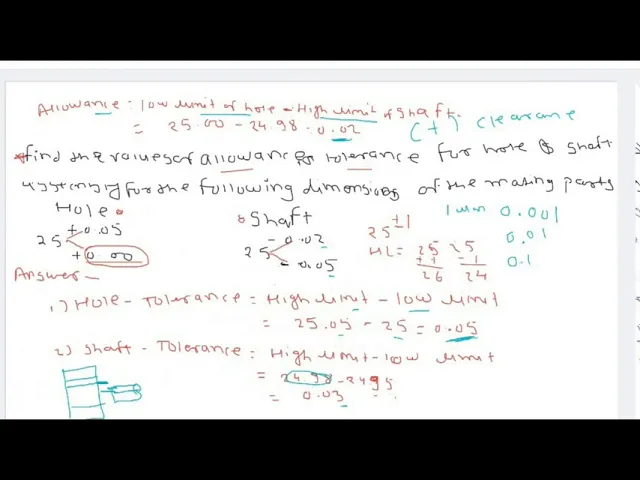 Allowance: low limit of hole - High limit of shaft.
= 25.00 - 24.98 = 0.02
(+) clearance
*find the values of allowance & tolerance for hole & shaft
for the following dimensions of the mating parts
Hole
Shaft
25 +0.05
+0.00
25 -0.02
-0.05
25 ±1
HL = 25 25
+1 -1
26 24
1 mm 0.001
0.01
0.1
Answer -
1) Hole - Tolerance = High limit - low limit
= 25.05 - 25 = 0.05
2) Shaft - Tolerance = High limit - low limit
= 24.98 - 24.95
= 0.03